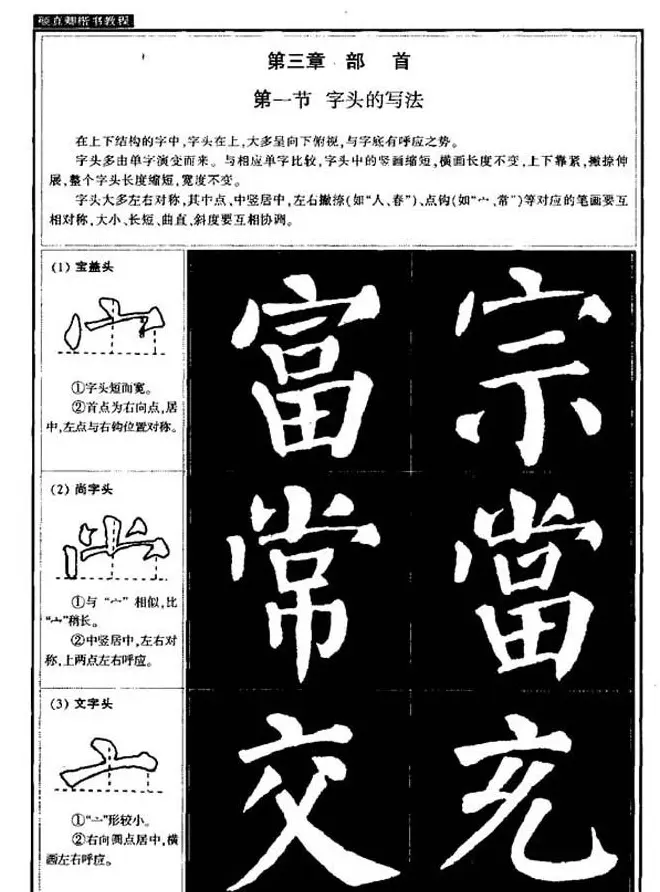 颜真卿楷书教程
第三章 部 首
第一节 字头的写法
在上下结构的字中,字头在上,大多呈向下俯视,与字底有呼应之势。
字头多由单字演变而来。与相应单字比较,字头中的竖画缩短,横画长度不变,上下靠紧,撇捺伸
展,整个字头长度缩短,宽度不变。
字头大多左右对称,其中点、中竖居中,左右撇捺(如“人、春”)、点钩(如“宀,常”)等对应的笔画要互
相对称,大小、长短、曲直、斜度要互相协调。
(1) 宝盖头
①字头短而宽。
②首点为右向点,居
中,左点与右钩位置对称。
富 宗
(2) 尚字头
①与“宀”相似,比
“宀”稍长。
②中竖居中,左右对
称,上两点左右呼应。
常 當
(3) 文字头
①“亠”形较小。
②右向圆点居中,横
画左右呼应。
交 充